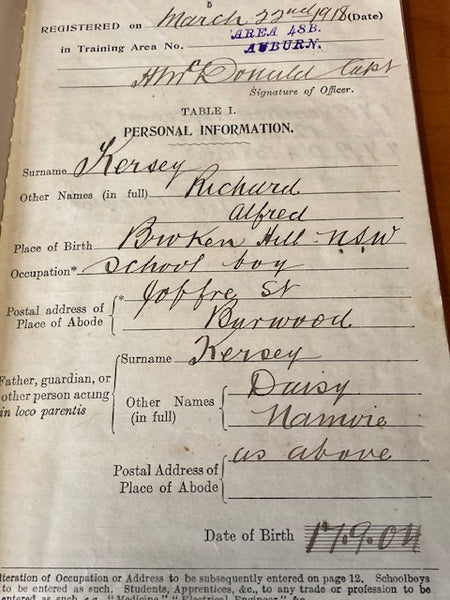 5
REGISTERED on March 22nd 1918 (Date)
in Training Area No. AREA 48B.
AUBURN.
H McDonald Capt
Signature of Officer.
TABLE I.
PERSONAL INFORMATION.
Surname Kersey
Other Names (in full) Richard
Alfred
Place of Birth Broken Hill NSW
Occupation* School boy
Postal address of Place of Abode * Joffre St
Burwood
Father, guardian, or other person acting in loco parentis
Surname Kersey
Other Names (in full) Daisy
Namvie
Postal Address of Place of Abode as above
Date of Birth 17.9.04
lteration of Occupation or Address to be subsequently entered on page 12. Schoolboys
to be entered as such. Students, Apprentices, &c., to any trade or profession to be
entered as such, e.g. "Medicine," "Electrical Engineer," &c.